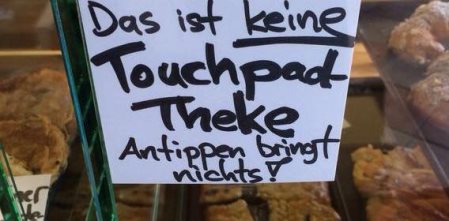 Das ist keine
Touchpad
Theke
Antippen bringt
nichts!